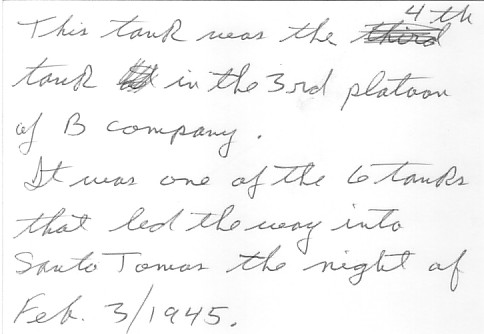 This tank was the 4th
tank in the 3rd platoon
of B company.
It was one of the 6 tanks
that led the way into
Santo Tomas the night of
Feb. 3/1945.